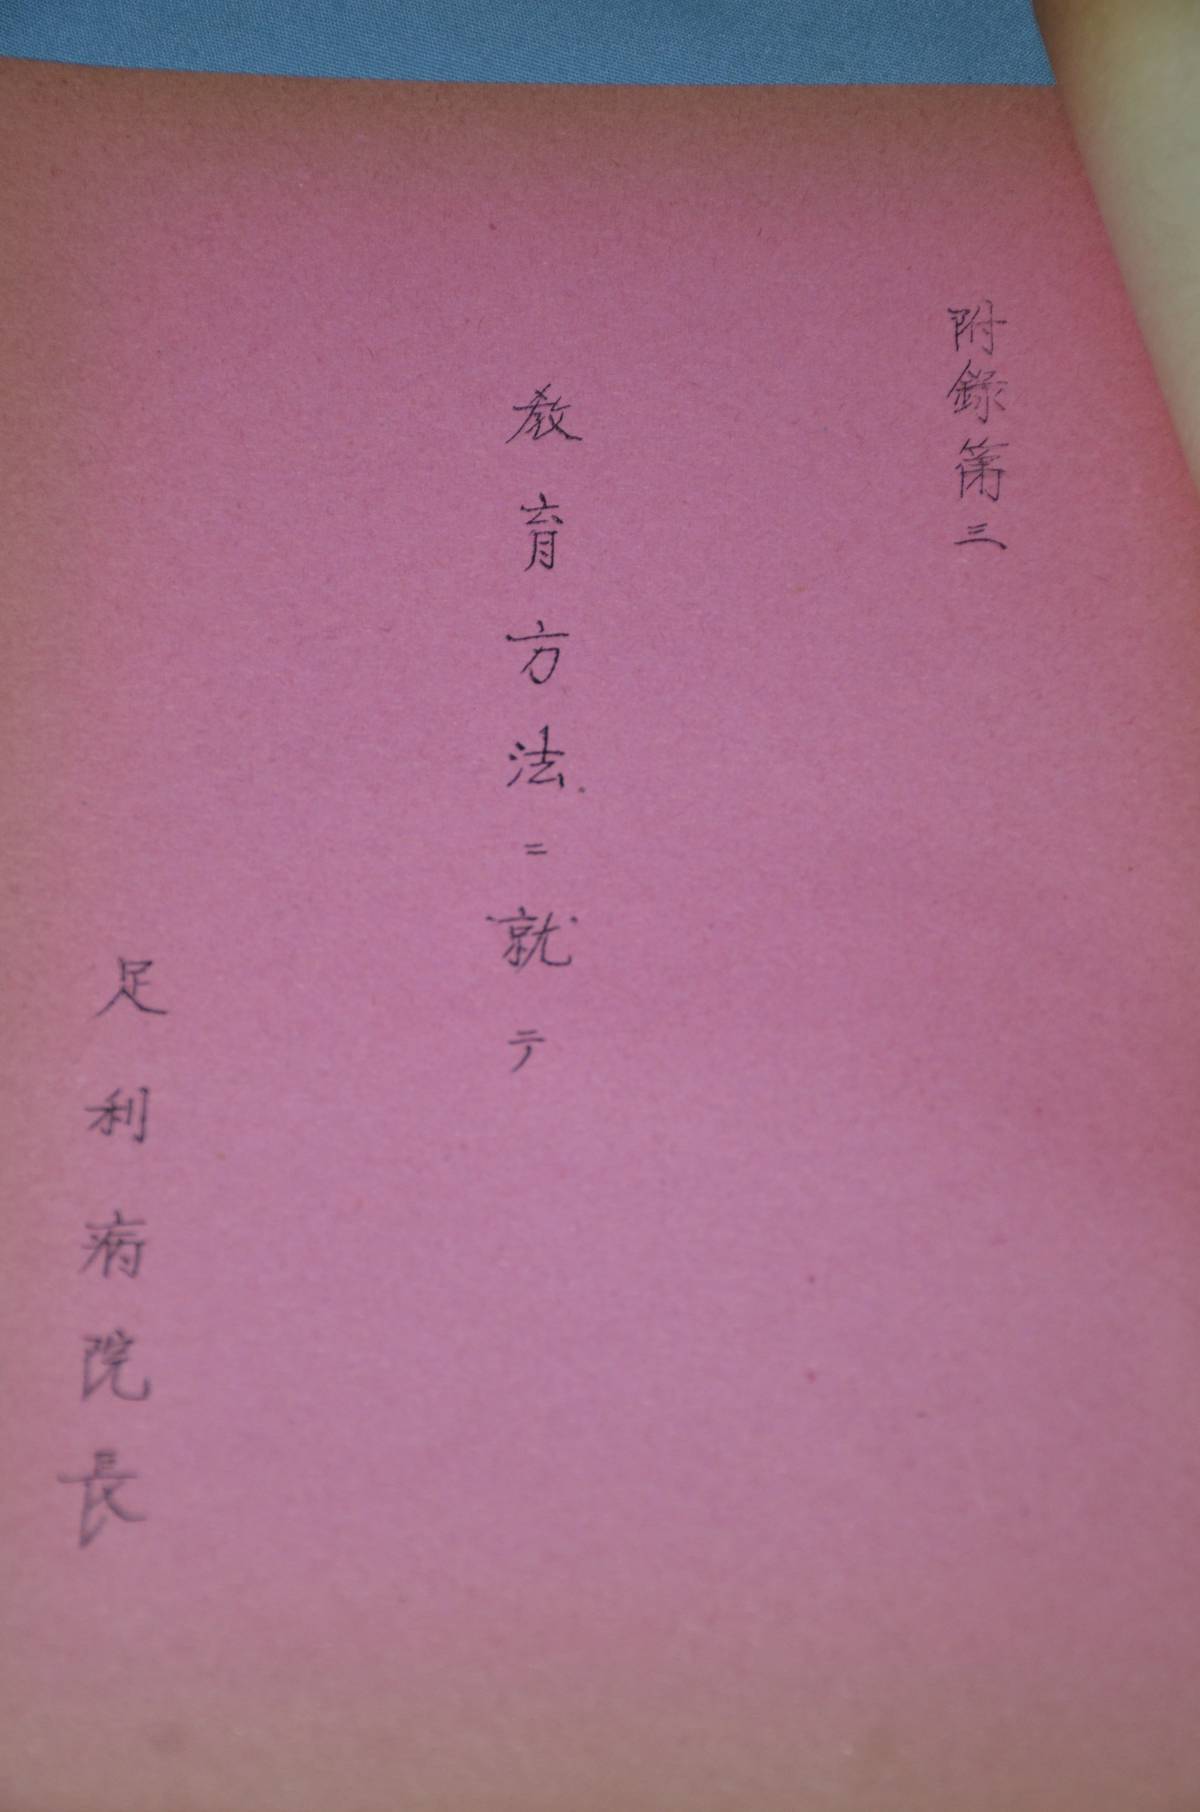 附錄第三
教育方法ニ就テ
足利病院長